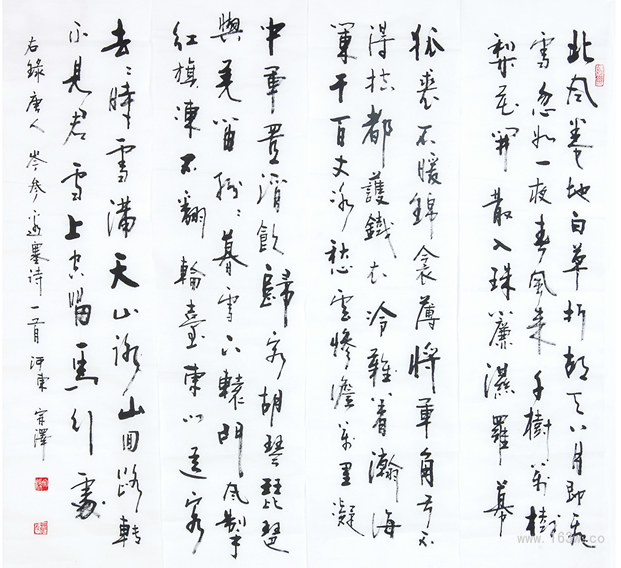 北風卷地白草折胡天八月即飛
雪忽如一夜春風来千樹萬樹
梨花開散入珠簾濕羅幕
狐裘不暖錦衾薄將軍角弓不
得控都護鐵衣冷難著瀚海
闌干百丈冰愁雲慘澹萬里凝
中軍置酒飲歸客胡琴琵琶
與羌笛紛々暮雪下轅門風掣
紅旗凍不翻輪臺東门送君
去々時雪满天山路山回路轉
不見君雪上空留馬行處
右錄唐人岑参邊塞诗一首河東宗澤